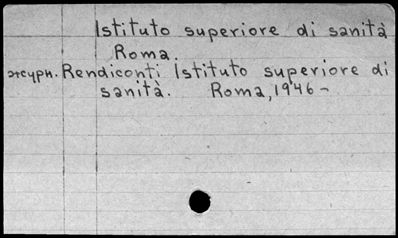 Istituto superiore di sanità
Roma.
журн. Rendiconti Istituto superiore di
sanità. Roma, 1946 –